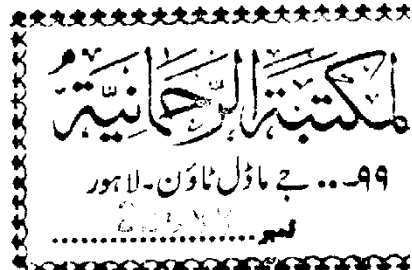 المکتبة الرحمانیة
۹۹... جے ماڈل ٹاؤن۔ لاہور
نمبر....................